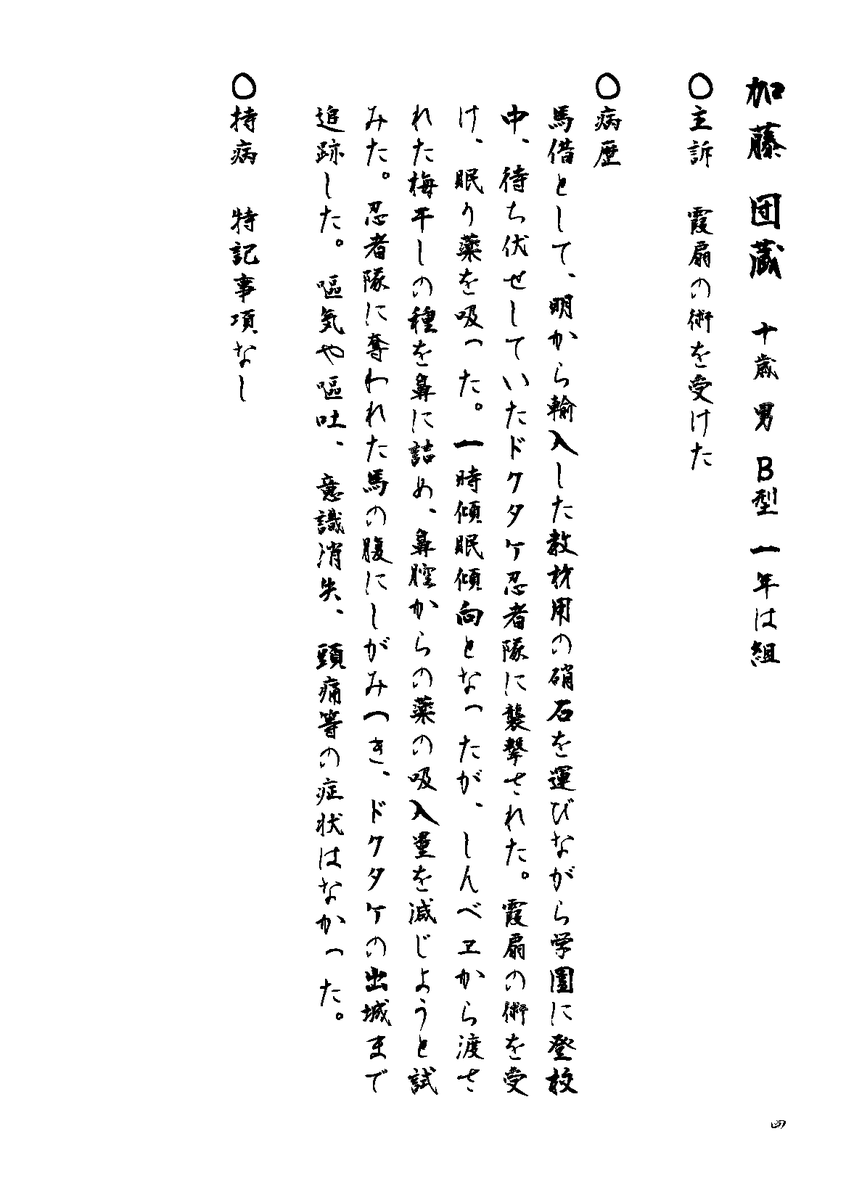 加藤 団蔵 十歳 男 B型 一年は組
〇主訴 霞扇の術を受けた
〇病歴
馬借として、明から輸入した教材用の硝石を運びながら学園に登校
中、待ち伏せしていたドクタケ忍者隊に襲撃された。霞扇の術を受
け、眠り薬を吸った。一時傾眠傾向となったが、しんベヱから渡さ
れた梅干しの種を鼻に詰め、鼻腔からの薬の吸入量を減じようと試
みた。忍者隊に奪われた馬の腹にしがみつき、ドクタケの出城まで
追跡した。嘔気や嘔吐、意識消失、頭痛等の症状はなかった。
〇持病 特記事項なし
四